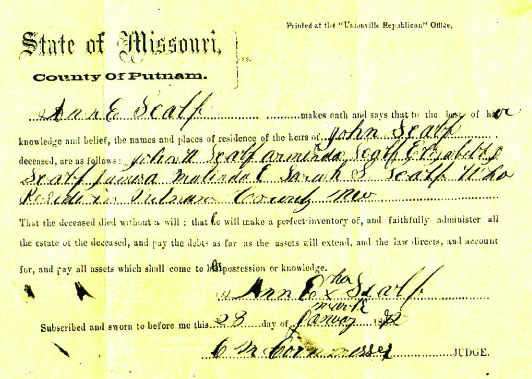 Printed at the "Unionville Republican" Office.
State of Missouri,
ss.
County Of Putnam.
Ann E Scalf makes oath and says that to the best of her
knowledge and belief, the names and places of residence of the heirs of John Scalf
deceased, are as follows: John W Scalf Arminda Scalf Elizabeth J
Scalf Malinda E Sarah S Scalf Who
Reside in Putnam County Mo
That the deceased died without a will; that he will make a perfect inventory of, and faithfully administer all
the estate of the deceased, and pay the debts as far as the assets will extend, and the law directs, and account
for, and pay all assets which shall come to her possession or knowledge.
her
Ann E x Scalf
mark
Subscribed and sworn to before me this 28 day of January 18
JUDGE.